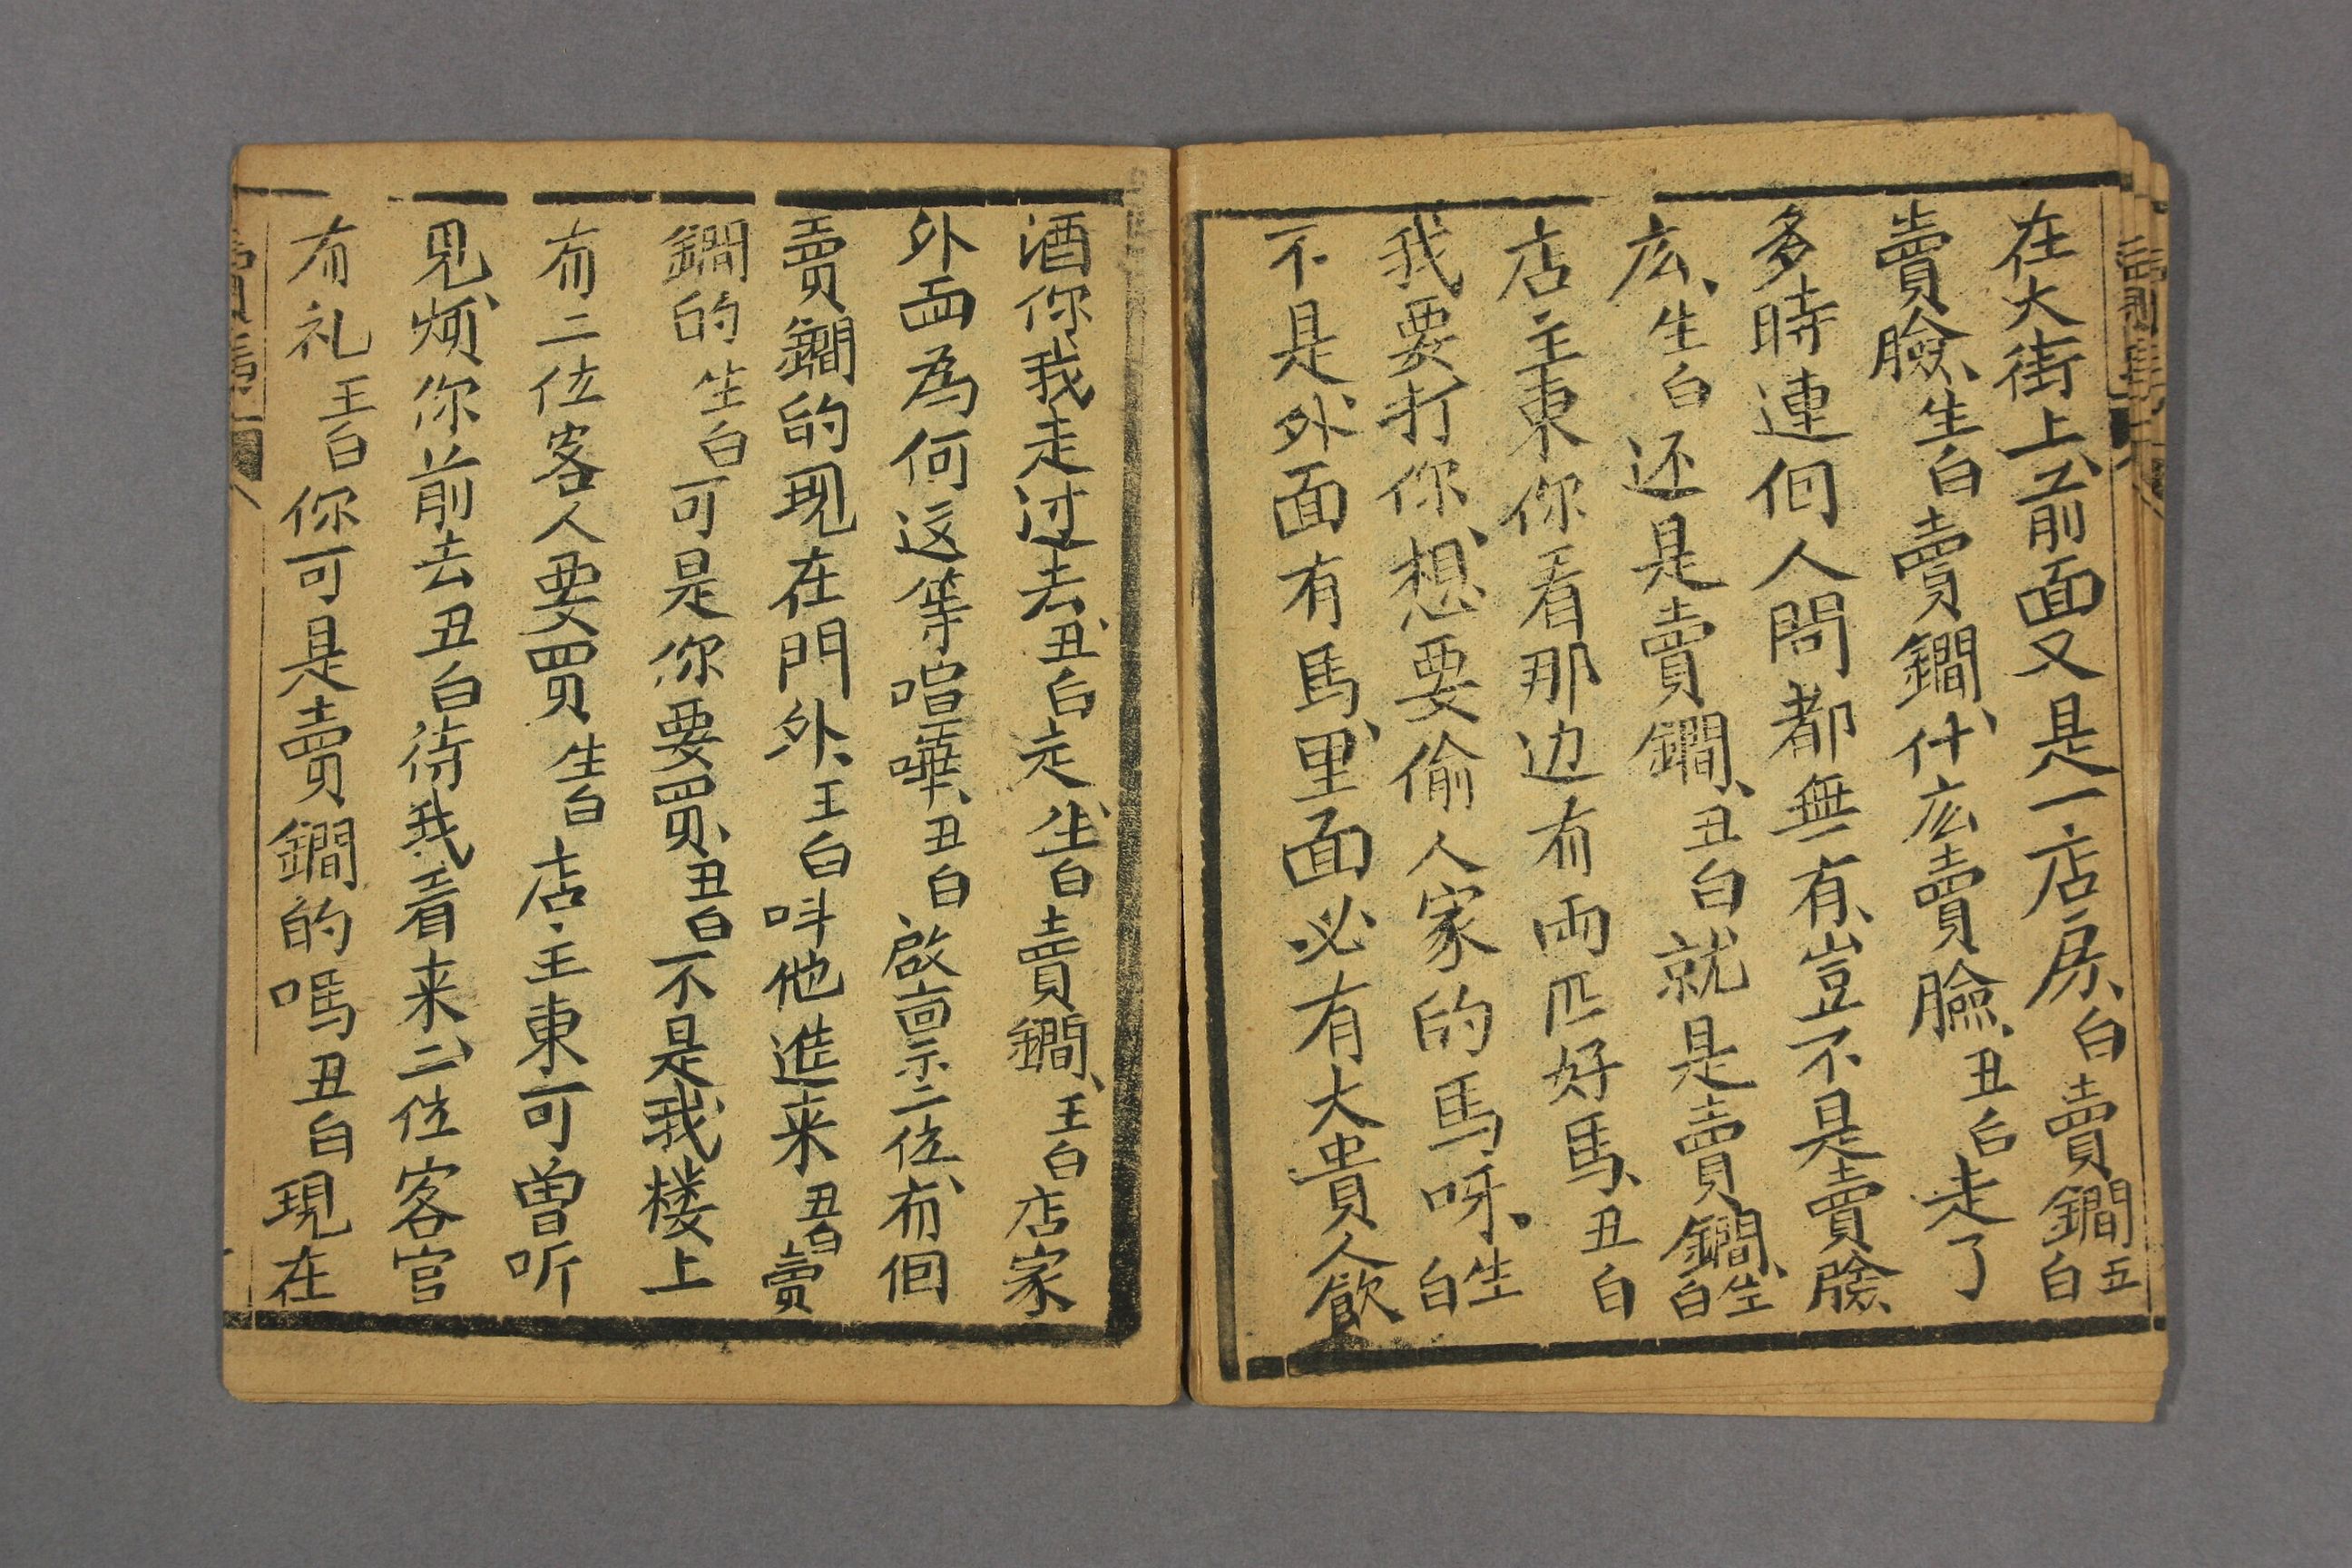 在大街上、前面又是一店房、白賣鐧丑白
賣臉、生白賣鐧、什庅賣臉、丑白走了
多時連個人問都無有、豈不是賣臉
庅、生白还是賣鐧、丑白就是賣鐧、生白
店主東你看那边有両匹好馬、丑白
我要打你、想要偷人家的馬呀。生白
不是外面有馬、里面必有大貴人飲
酒你我走过去、丑白走、生白賣鐧、王白店家
外面為何这等喧嘩、丑白啟禀二位、有個
賣鐧的現在門外、王白呌他進来丑白賣
鐧的生白可是你要買、丑白不是我楼上
有二位客人要買生白店主東可曾听
見、煩你前去丑白待我看来、二位客官
有礼王白你可是賣鐧的嗎丑白現在